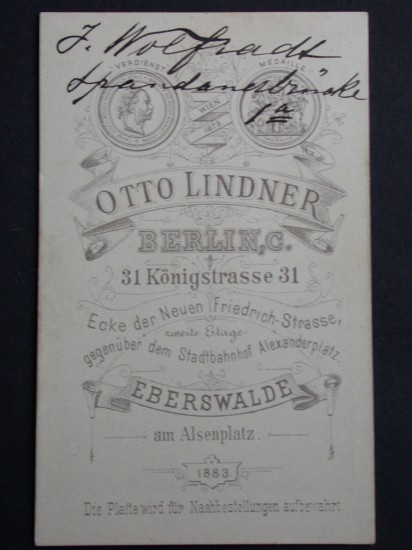 J. Wolfradt
Spandauerbrücke
1a
VERDIENST MEDAILLE
WIEN
1873
OTTO LINDNER
BERLIN, C.
31 Königstrasse 31
Ecke der Neuen Friedrich-Strasse,
zweite Etage
gegenüber dem Stadtbahnhof Alexanderplatz.
EBERSWALDE
am Alsenplatz.
1883.
Die Platte wird für Nachbestellungen aufbewahrt.